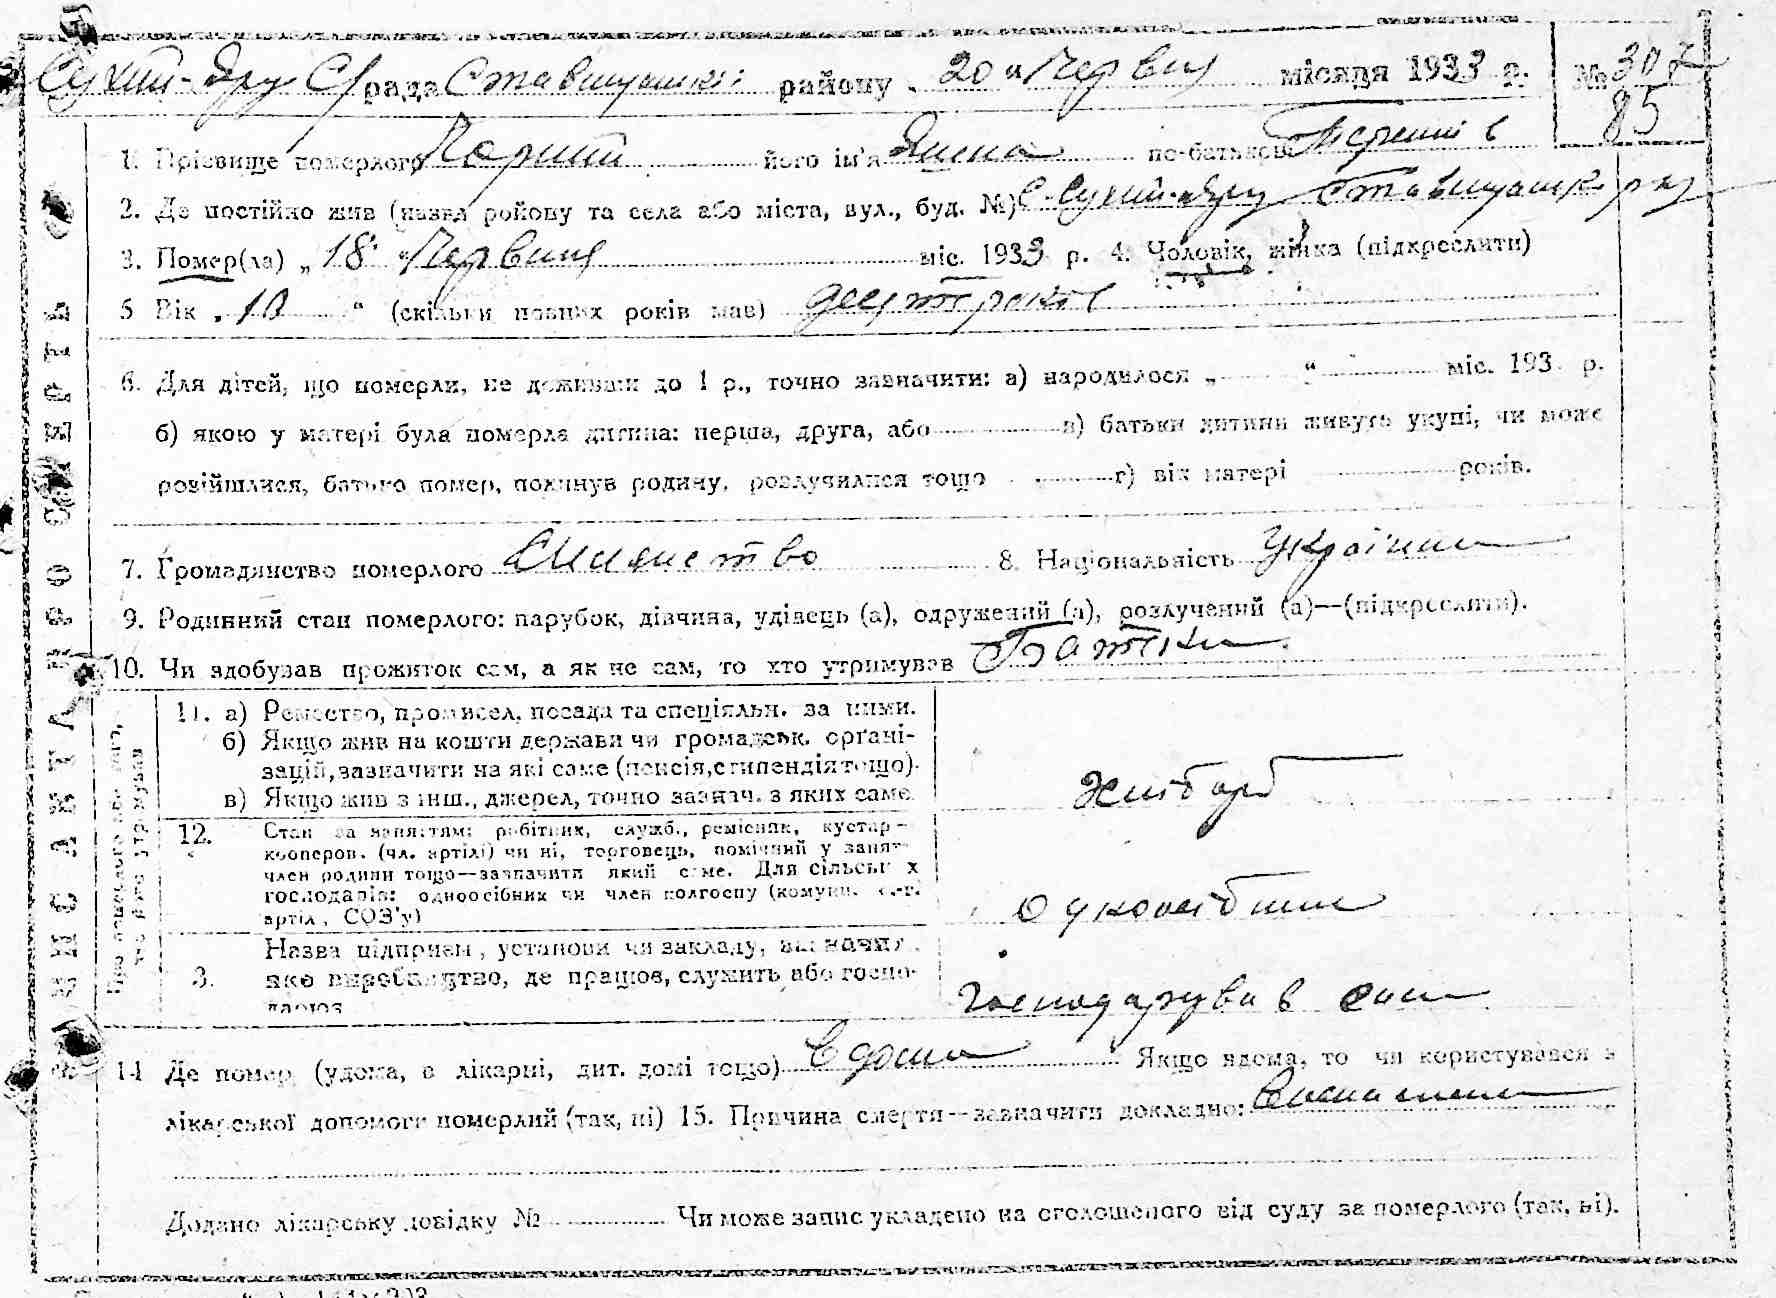 Сухий-Яру С/рада Ставищанські району „20“ Червня місяця 1933 р. № 307
85
1. Прізвище померлого Чорний його ім'я по-батькові
2. Де постійно жив (назва району та села або міста, вул., буд. №) с. Сухий-Яру Ставищанськ. рай
3. Помер(ла) „18“ Червня міс. 1933 р. 4. Чоловік, жінка (підкреслити)
5 Вік „10“ (скільки повних років мав) десять років
6. Для дітей, що померли, не доживши до 1 р., точно зазначити: а) народилося „ “ міс. 193 р.
б) якою у матері була померла дитина: перша, друга, або в) батьки дитини живуть укупі, чи може
розійшлися, батько помер, покинув родину, розлучилися тощо г) вік матері років.
7. Громадянство померлого 8. Національність Українець
9. Родинний стан померлого: парубок, дівчина, удівець (а), одружений (а), розлучений (а)—(підкреслити).
10. Чи здобував прожиток сам, а як не сам, то хто утримував Батьки
11. а) Ремество, промисел, посада та спеціяльн. за ними.
б) Якщо жив на кошти держави чи громадськ. орґані-
зацій, зазначити на які саме (пенсія, стипендія тощо).
в) Якщо жив з інш., джерел, точно зазнач. з яких саме
Хлібороб
12. Стан за заняттям: робітник, служб., ремісник, кустар-
кооперов. (чл. артілі) чи ні, торговець, помічний у занят.
член родини тощо—зазначити який саме. Для сільськ х
господарів: одноосібник чи член колгоспу (комуни, с.-г.
артіл, СОЗ'у)
Одноосібник
3. Назва підприєм, установи чи закладу, визначит
яке виробництво, де працюв, служить або госпо-
дарюв
Господарував сам
14 Де помер (удома, в лікарні, дит. домі тощо) Вдома Якщо вдома, то чи користувався з
лікарської допомоги померлий (так, ні) 15. Причина смерти—зазначити докладно:
Додано лікарську довідку № Чи може запис укладено на оголошеного від суду за померлого (так, ні).
ЗАПИС АКТА ПРО СМЕРТЬ